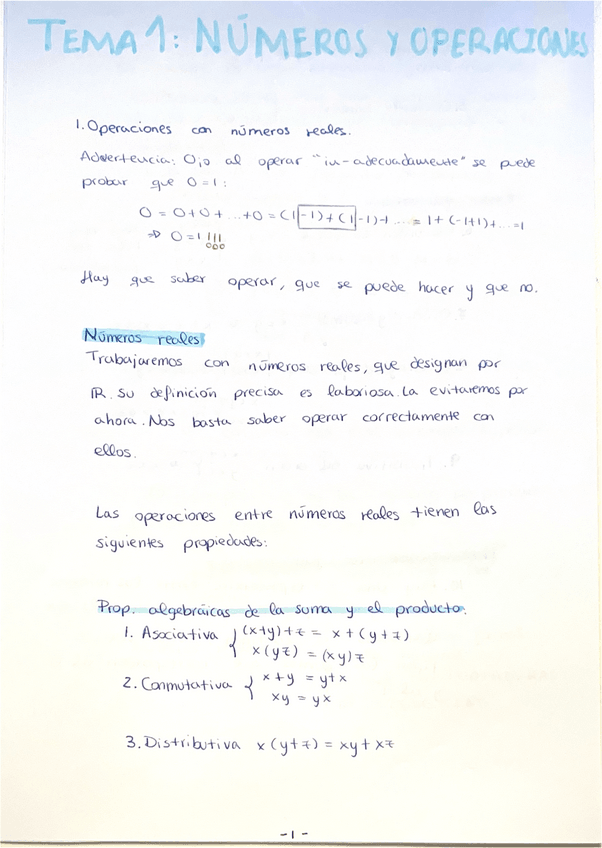 TEMA 1: NÚMEROS Y OPERACIONES
1. Operaciones con números reales.
Advertencia: Ojo al operar "in-adecuadamente" se puede
probar que 0=1:
0 = 0+0+ ... +0 = (1-1)+(1-1)+ ... = 1+(-1+1)+...=1
⇒ 0=1!!!
Hay que saber operar, que se puede hacer y que no.
Números reales
Trabajaremos con números reales, que designan por
ℝ. Su definición precisa es laboriosa. La evitaremos por
ahora. Nos basta saber operar correctamente con
ellos.
Las operaciones entre números reales tienen las
siguientes propiedades:
Prop. algebráicas de la suma y el producto.
1. Asociativa { (x+y)+z = x+(y+z)
x(yz) = (xy)z
2. Conmutativa { x+y = y+x
xy = yx
3. Distributiva x(y+z) = xy+xz
-1-